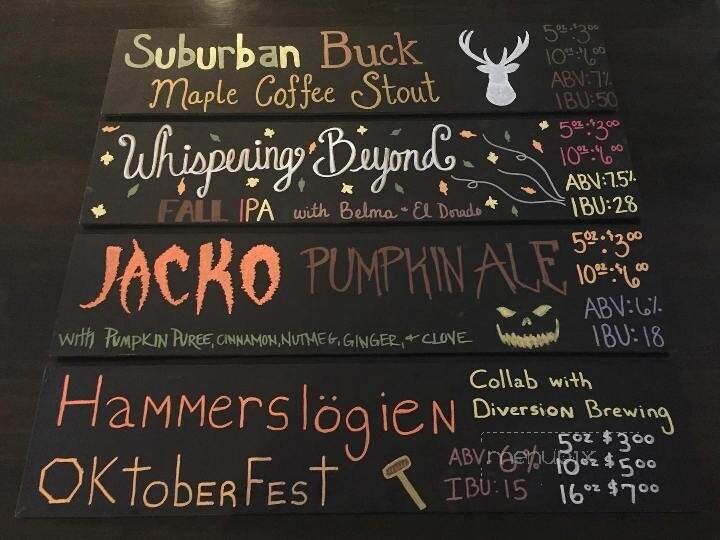 Suburban Buck
Maple Coffee Stout
5oz: $3.00
10oz: $6.00
ABV: 7%
IBU: 50
Whispering Beyond
FALL IPA with Belma + El Dorado
5oz: $3.00
10oz: $6.00
ABV: 7.5%
IBU: 28
JACKO PUMPKIN ALE
with PUMPKIN PUREE, CINNAMON, NUTMEG, GINGER, + CLOVE
5oz: $3.00
10oz: $6.00
ABV: 6%
IBU: 18
HAMMERSLÖGIEN
OKTOBERFEST
Collab with
Diversion Brewing
ABV: 6%
IBU: 15
5oz $3.00
10oz $5.00
16oz $7.00
menupix